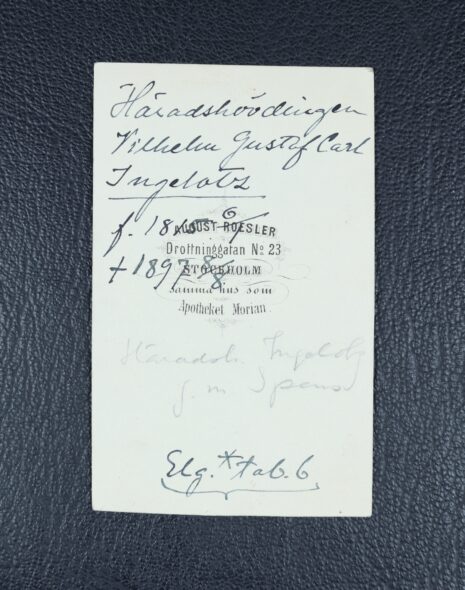 Häradshövdingen
Vilhelm Gustaf Carl
Ingelotz
f. 18
AUGUST ROESLER
Drottninggatan No 23
† 1897 8/8
STOCKHOLM
samma hus som
Apotheket Morian
Häradsh. Ingelotz
g. m Spens
Elg. * tab. 6